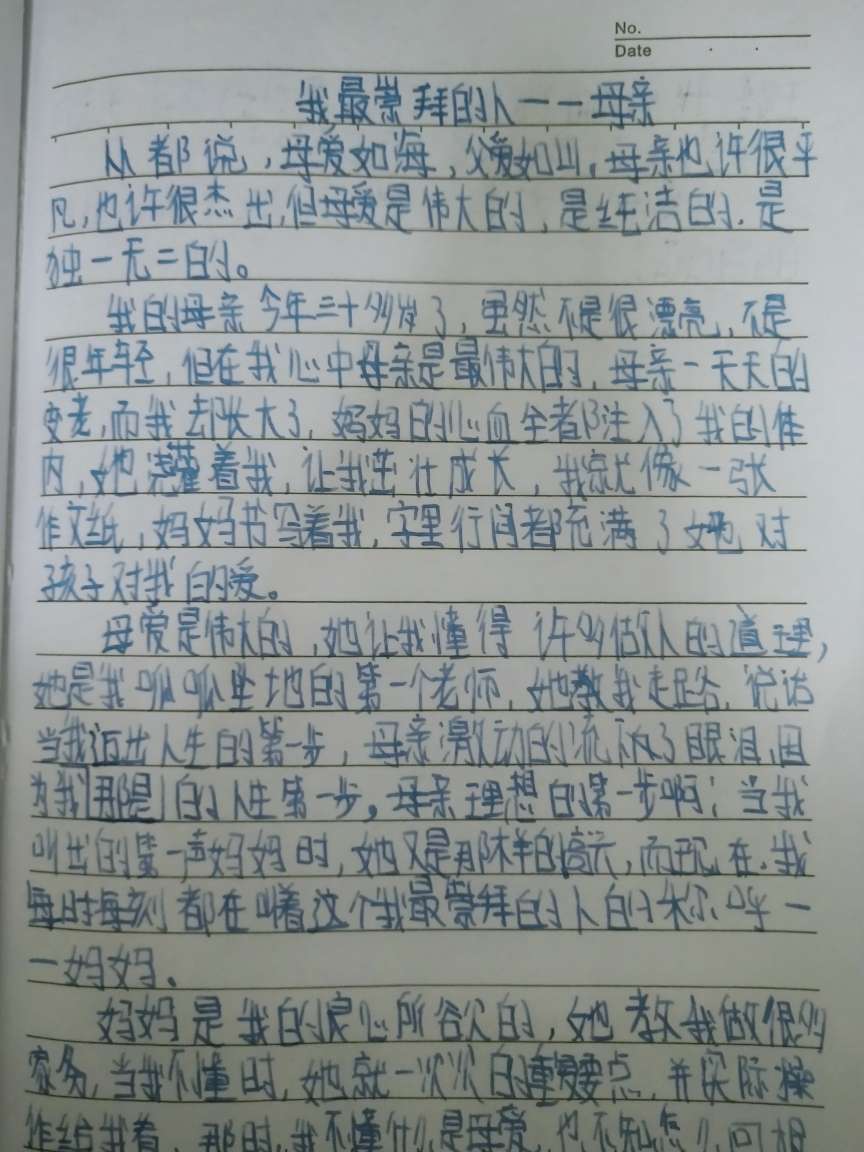 No.
Date
我最崇拜的人一一母亲
人都说，母爱如海，父爱如山，母亲也许很平
凡，也许很杰出，但母爱是伟大的，是纯洁的，是
独一无二的。
我的母亲今年三十多岁了，虽然不是很漂亮，不是
很年轻，但在我心中母亲是最伟大的，母亲一天天的
变老，而我却长大了，妈妈的心血全都注入了我的体
内，她浇灌着我，让我茁壮成长，我就像一张
作文纸，妈妈书写着我，字里行间都充满了她对
孩子对我的爱。
母爱是伟大的，她让我懂得许多做人的道理，
她是我呱呱坠地的第一个老师，她教我走路，说话
当我迈出人生的第一步，母亲激动的流下了眼泪，因
为我那是的人生第一步，母亲理想的第一步啊；当我
叫出的第一声妈妈时，她又是那样的高兴，而现在，我
每时每刻都在叫着这个我最崇拜的人的称呼一
一妈妈。
妈妈是我的良心所欲的，她教我做很多
家务，当我不懂时，她就一次次的重复要点，并实际操
作给我看，那时，我不懂什么是母爱，也不知怎么回报